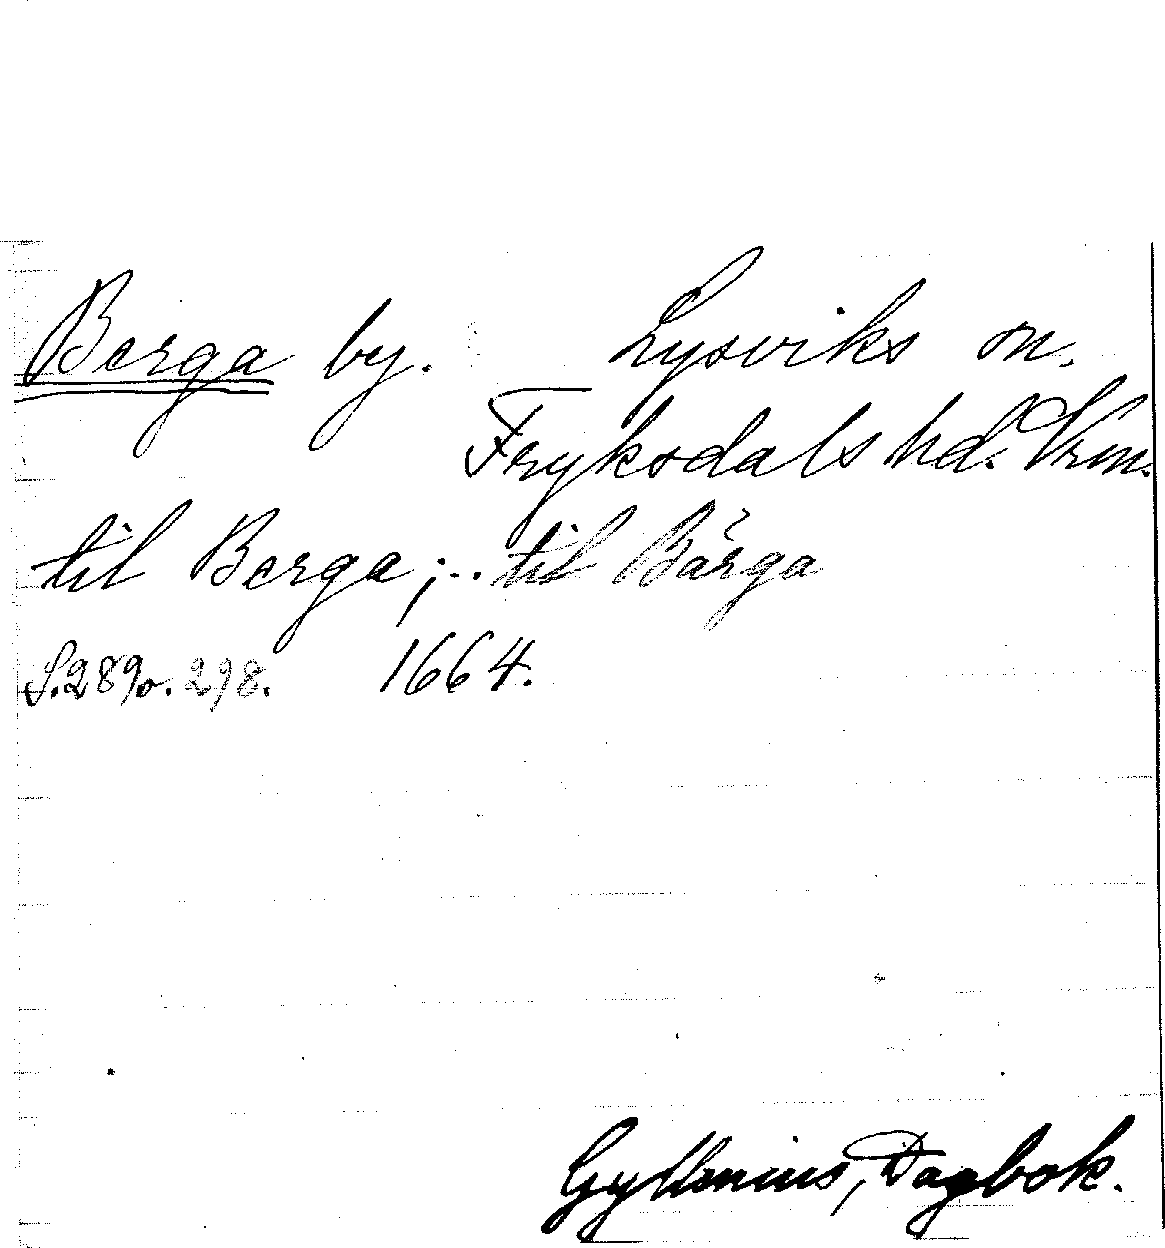 Berga by. Lysviks sn.
Fryksdals hd. Vrm.
til Berga; .. til Bärga
S. 289 o. 298. 1664.
Gyllenius, Dagbok.